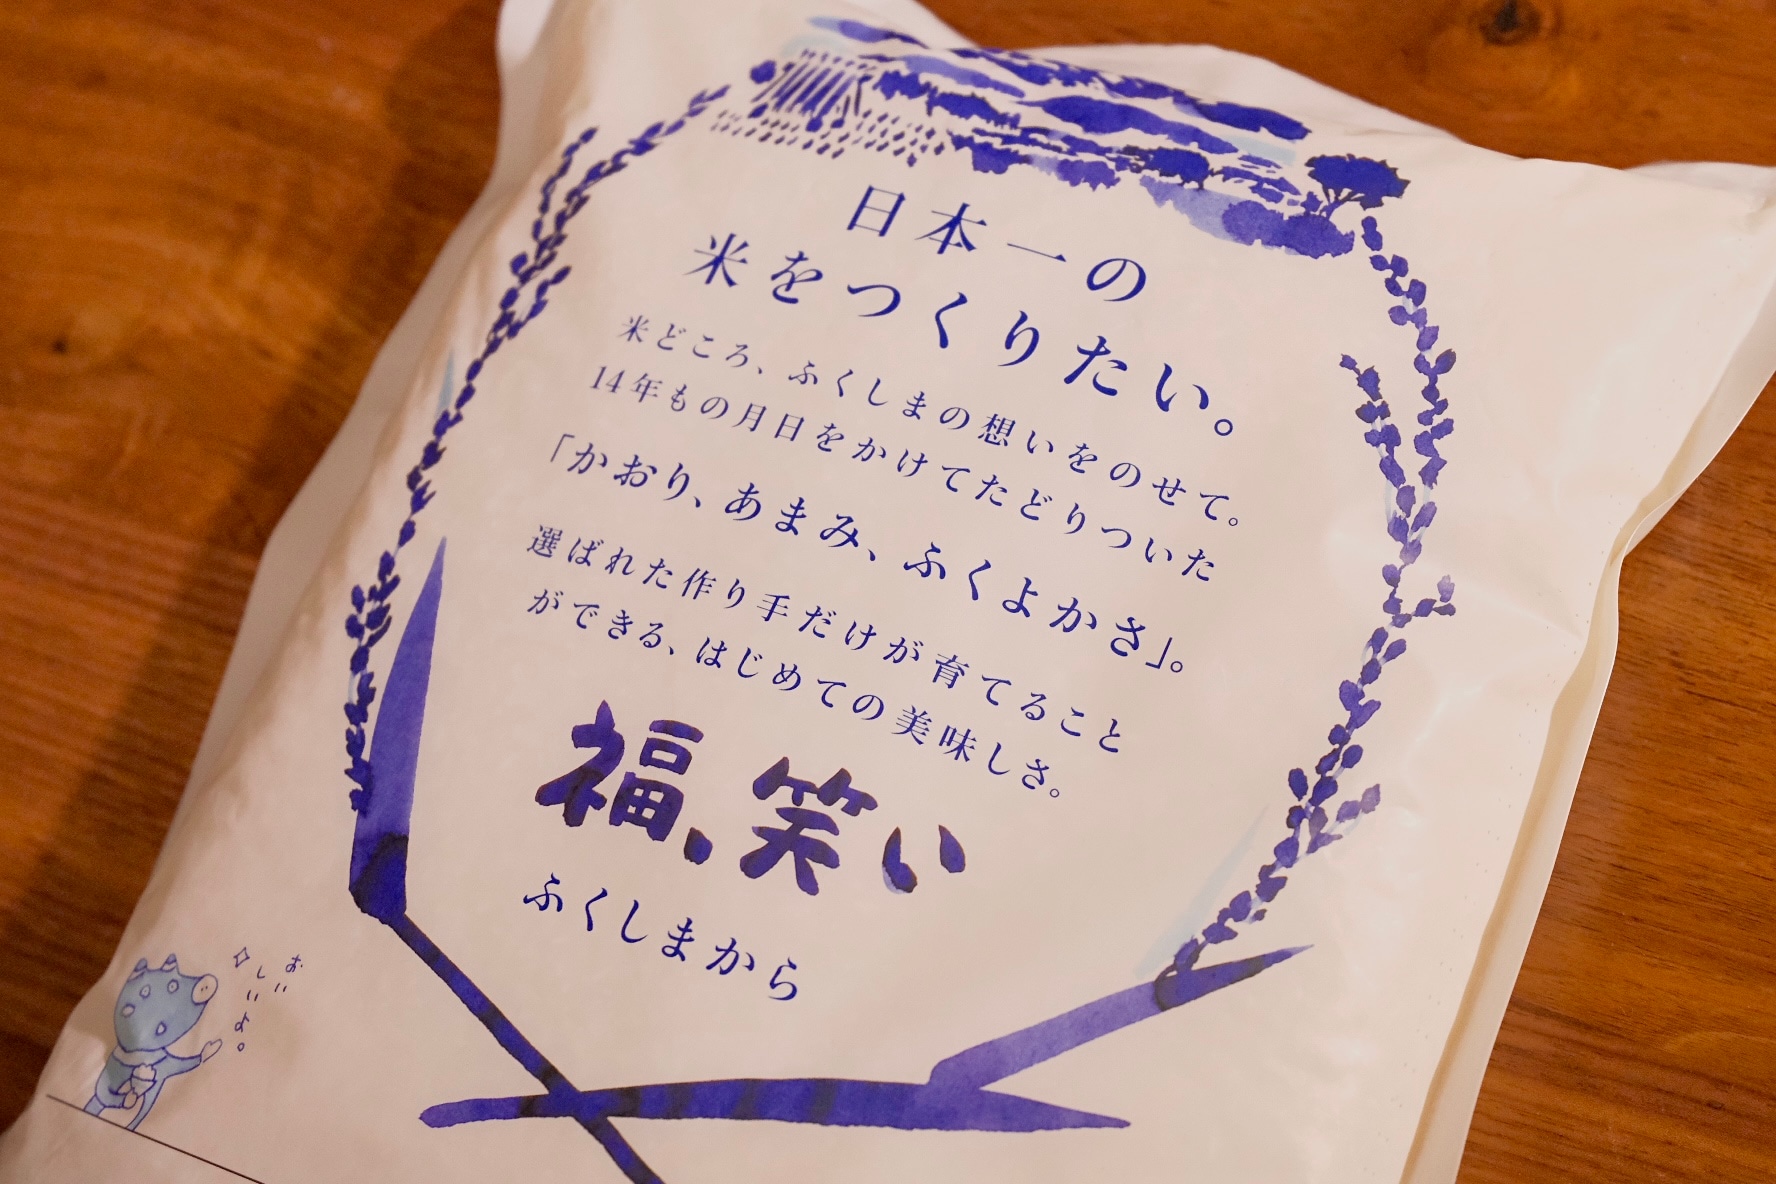 日本一の
米をつくりたい。
米どころ、ふくしまの想いをのせて。
14年もの月日をかけてたどりついた
「かおり、あまみ、ふくよかさ」。
選ばれた作り手だけが育てること
ができる、はじめての美味しさ。
福、笑い
ふくしまから
おい
しいよ。